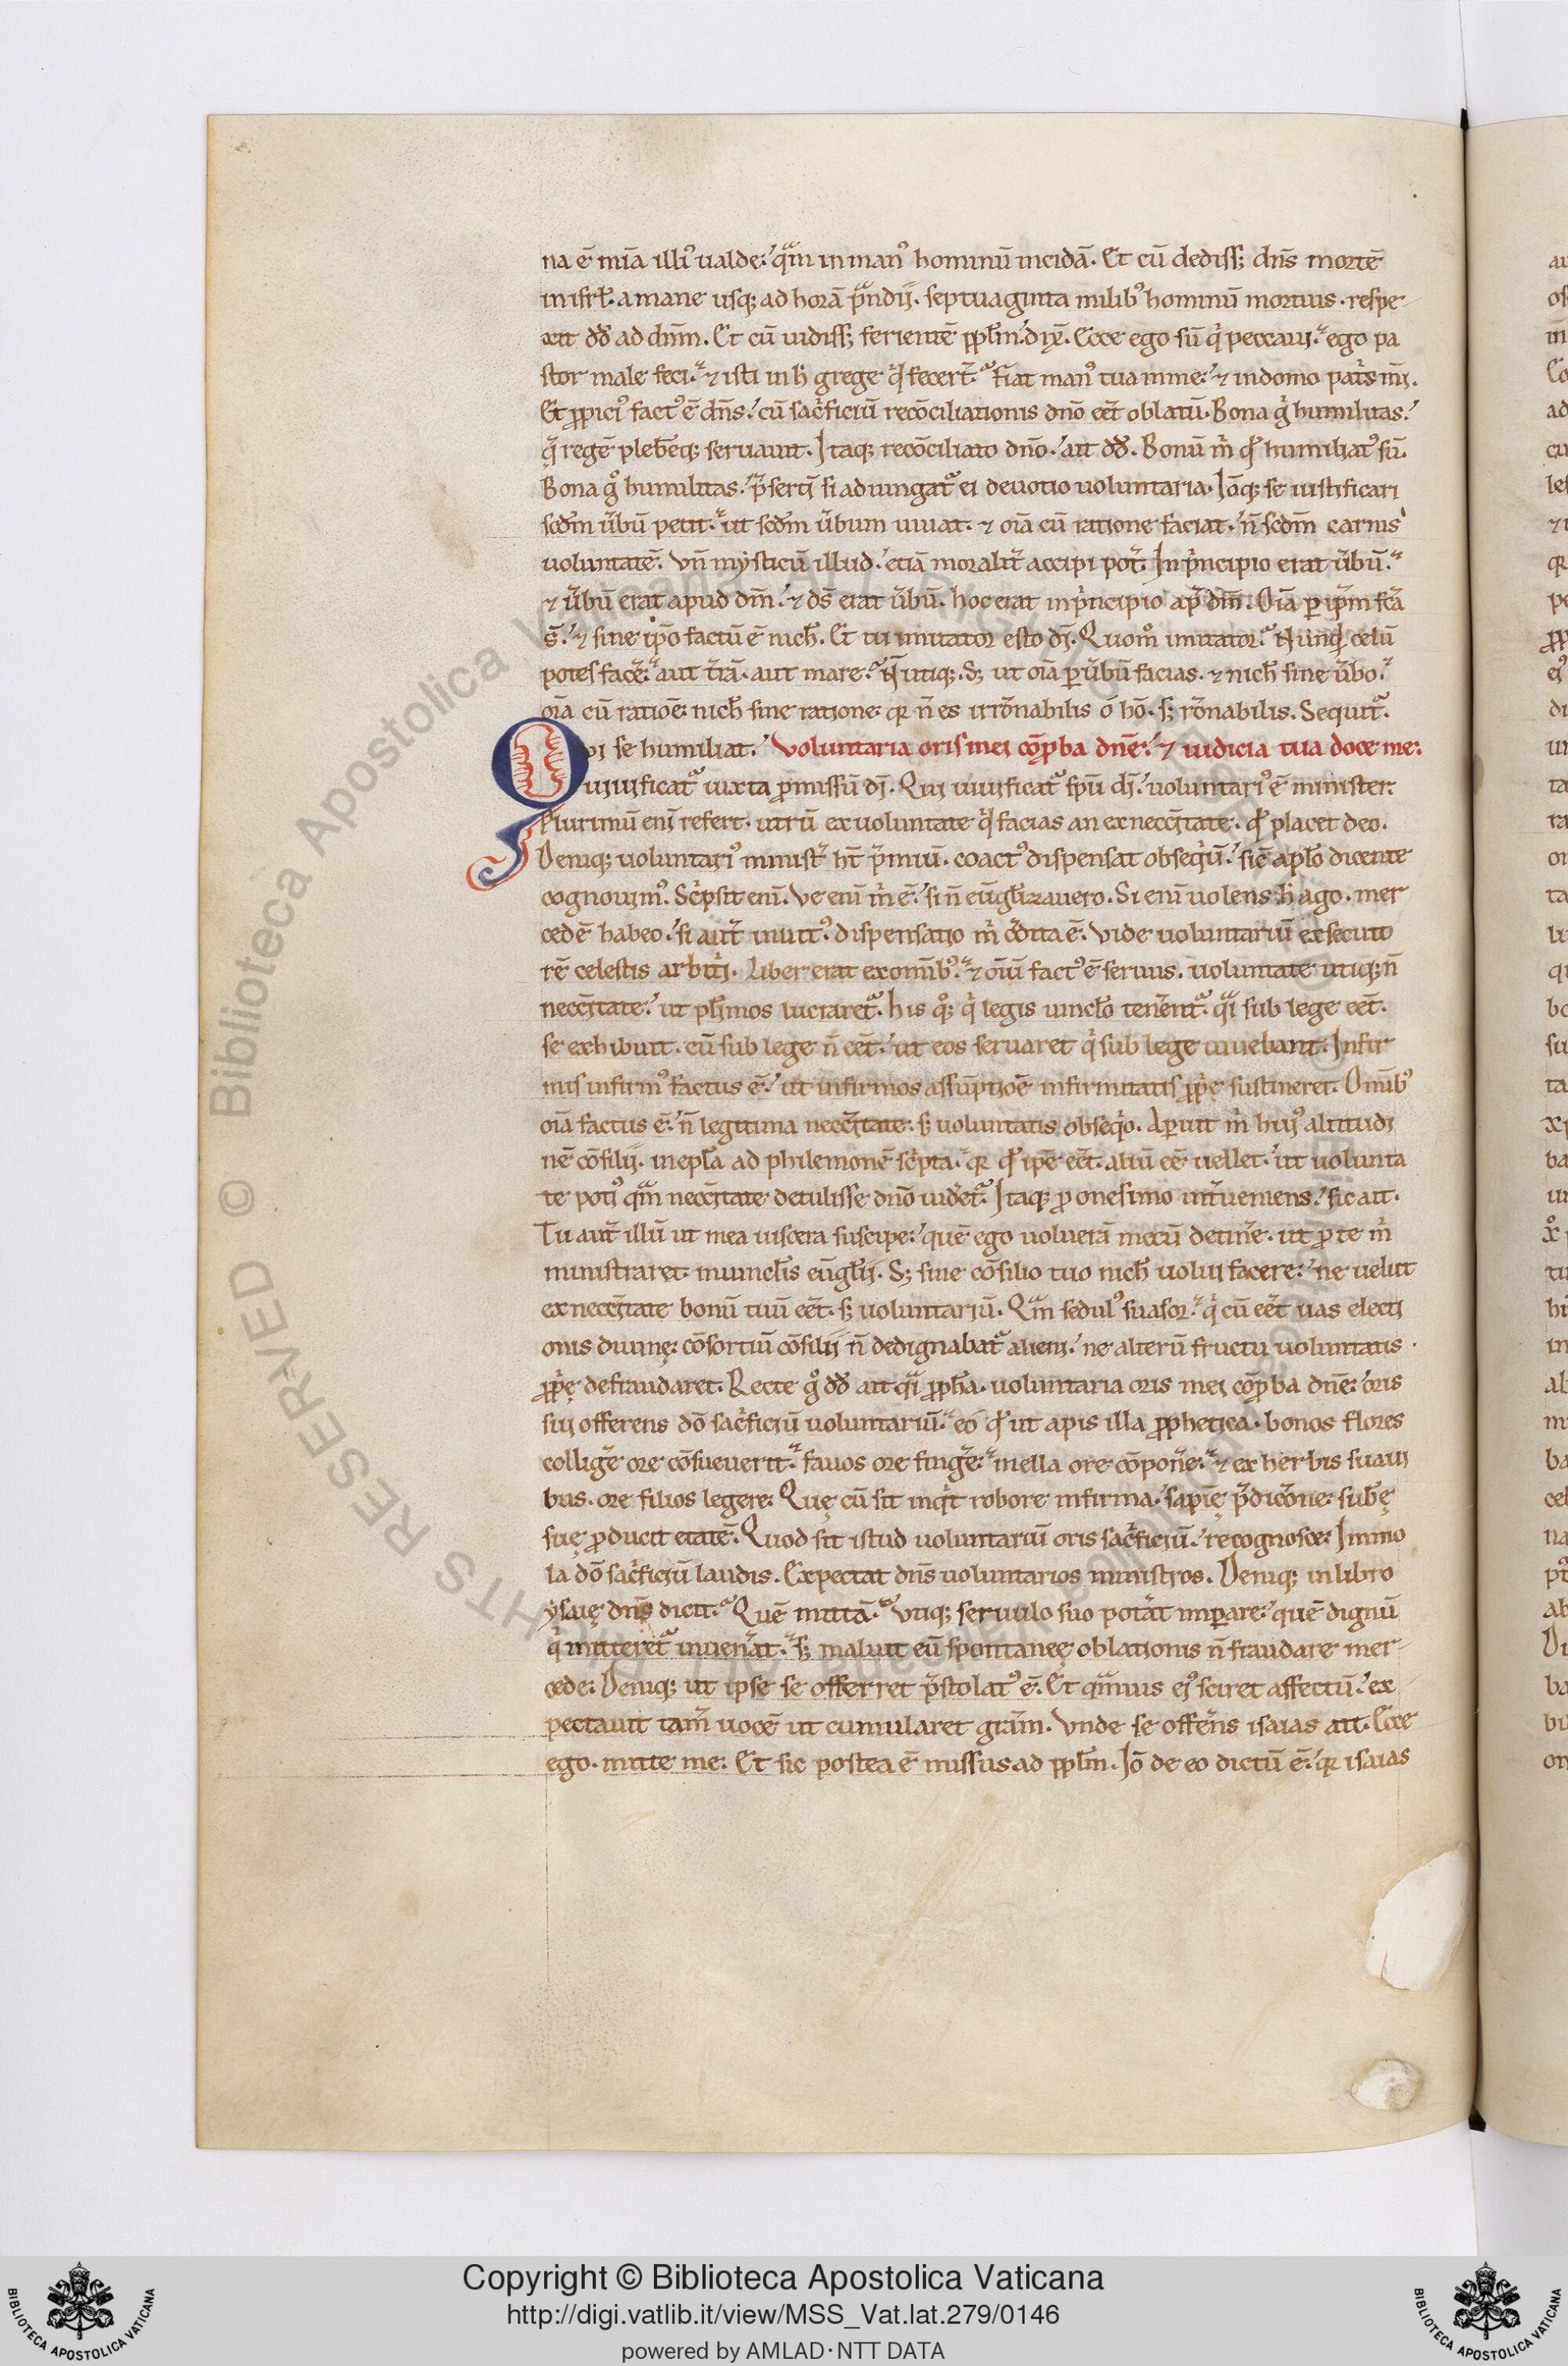 na ē mīa illiꝰ ualde. qͣm in manꝰ hominū incidā. Et cū dediſſ; dn̄s mortē
in iſrł. a mane uſq; ad horā p̄ndij. septuaginta milibꝰ hominū mortuis. reſpe
xit dd̄ ad dn̄m. Et cū uidiſſ; ferientē ppl̄m. dix̄. Ecce ego ſū qͥ peccaui. ego pa
ſtor male feci. ⁊ iſti in h̄ grege qͥd fecer̄t. Fiat manꝰ tua in me. ⁊ in domo pat̄s m̄i.
Et ꝓpiciꝰ factꝰ ē dn̄s. cū ſac̄ficiū recōciliationis dn̄o eēt oblatū. Bona gͥ humilitas.
q̄ regē plebēq; ſeruauit. Itaq; recōciliato dn̄o. ait dd̄. Bonū m̄ qd̄ humiliatꝰ ſū.
Bona gͦ humilitas. p̄ſertī ſi adiungatᷣ ei deuotio uoluntaria. Iōq; ſe iuſtificari
ſcd̄m ūbū petit. ut ſcd̄m ūbum uiuat. ⁊ oīa cū ratione faciat. n̄ ſcd̄m carnis
uoluntatē. Vn̄ myſticū illud. etiā moralit̄ accipi pot̄. In p̄ncipio erat ūbū.
⁊ ūbū erat apud dm̄. ⁊ ds̄ erat ūbū. hoc erat in p̄ncipio ap̄ dm̄. Oīa ꝑ ip̄m fc̄a
s̄. ⁊ ſine ip̄o factū ē nich̄. Et tu imitator eſto dī. Quomͦ imitator. Nūnqd̄ celū
poteſ facē. aut t̄rā. aut mare. N̄ utiq;. S; ut oīa ꝑ ūbū facias. ⁊ nich̄ ſine ūbo.
oīa cū ratioē. nich̄ ſine ratione. qꝛ n̄ es irrōnabilis o hō. ſ; rōnabilis. Sequitᷣ.
Qvi ſe humiliat. Voluntaria oriſ mei cōꝓba dn̄e. ⁊ iudicia tua doce me.
uiuificatᷣ iuxta ꝓmiſſū dī. Qui uiuificatᷣ ſpū dī. uoluntariꝰ ē miniſter.
Plurimū enī refert. utrū ex uoluntate qͥd facias an ex neceſſ̄itate. qd̄ placet deo.
Deniq; uoluntariꝰ miniſt̄ ht̄ p̄miū. coactꝰ diſpenſat obſeqͥū. ſic̄ apl̄o dicente
cognouimꝰ. Sc̄pſit enī. Ve enī m̄ ē. ſi n̄ eūgl̄izauero. Si enī uolens h̄ ago. mer
cedē habeo. ſi aut̄ inuitꝰ. diſpenſatio m̄ c̄dita ē. Vide uoluntariū exſecuto
rē celeſtis arbit̄j. Liber erat ex omībꝰ. ⁊ oīū factꝰ ē ſeruus. uoluntate utiq; n̄
neceſſ̄itate. ut pl̄imos lucraretᷣ. his qͦq; qͥ legis uincl̄o ten̄entᷣ. qͣſi ſub lege eēt.
ſe exhibuit. cū ſub lege n̄ eēt. ut eos ſeruaret qͥ ſub lege uiuebant. Infir
mis infirmꝰ factus ē. ut infirmos aſſūptioē infirmitatiſ ꝓp̄ę ſuſtineret. Omībꝰ
oīa factus ē. n̄ legitima neceſſ̄itate. ſ; uoluntatis obſeqͥo. Aperuit m̄ huiꝰ altitudi
nē cōſilij. in epl̄a ad philemonē ſc̄pta. qꝛ qd̄ ip̄e eēt. aliū eē uellet. ut uolunta
te potiꝰ qͣm neceſſ̄itate detuliſſe dn̄o uidētᷣ. Itaq; ꝓ oneſimo int̄ueniens. ſic ait.
Tu aut̄ illū ut mea uiſcera ſuſcipe. quē ego uoluerā mecū detin̄e. ut ꝓ te m̄
miniſtraret. in uincl̄is eūgl̄ij. S; ſine cōſilio tuo nich̄ uolui facere. ne uelut
ex neceſſ̄itate bonū tuū eēt. ſ; uoluntariū. Qͣm ſedulꝰ ſuaſor. qͥ cū eēt uas electi
onis diuinę. cōſortiū cōſilij n̄ dedignabatᷣ alieni. ne alterū fructu uoluntatis
ꝓp̄ę defraudaret. Recte gͦ dd̄ ait qͣſi ꝓph̄a. uoluntaria oris mei cōꝓba dn̄e. oris
ſui offerens dō ſac̄ficiū uoluntariū. eo qd̄ ut apis illa ꝓphetica. bonos flores
colliḡe ore cōſueuerit. fauos ore finḡe. mella ore cōpon̄e. ⁊ ex herbis ſuaui
bus. ore filios legere. Quę cū ſit inqͥt robore infirma. ſapīę p̄dicōne. ſub̄ę
ſuę ꝓducit etatē. Quod ſit iſtud uoluntariū oris ſac̄ficiū. recognoſce. Immo
la dō ſac̄ficiū laudis. Expectat dn̄s uoluntarios miniſtros. Deniq; in libro
yſaię dn̄s dicit. Quē mittā. Vtiq; ſeruulo ſuo pot̄at imꝑare. quē dignū
qͥ mitteretᷣ inuen̄at. ſ; maluit eū ſpontaneę oblationis n̄ fraudare mer
cede. Deniq; ut ipſe ſe offerret p̄ſtolatꝰ ē. Et qͣmuis eiꝰ ſciret affectū. ex
pectauit tam̄ uocē ut cumularet grām. Vnde ſe offer̄ns iſaias ait. Ecce
ego. mitte me. Et ſic poſtea ē miſſus ad ppl̄m. Iō de eo dictū ē. qꝛ iſaias
Copyright © Biblioteca Apostolica Vaticana
http://digi.vatlib.it/view/MSS_Vat.lat.279/0146
powered by AMLAD·NTT DATA
BIBLIOTECA APOSTOLICA VATICANA
BIBLIOTECA APOSTOLICA VATICANA